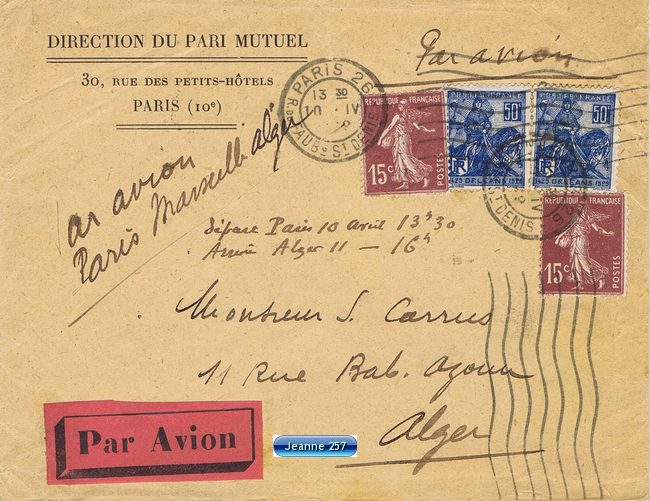 DIRECTION DU PARI MUTUEL
30, RUE DES PETITS-HÔTELS
PARIS (10e)
Par avion
PARIS 26
13 30
10 IV
R. DU FAUBG ST DENIS
RÉPUBLIQUE FRANÇAISE
15c
POSTES
POSTES FRANCE
50c
RF
1429 ORLEANS 1929
POSTES FRANCE
50c
RF
1429 ORLEANS 1929
ST DENIS
RÉPUBLIQUE FRANÇAISE
15c
POSTES
Par avion
Paris Marseille Alger
départ Paris 10 avril 13h30
Arrivée Alger 11 — 16h
Monsieur S. Carrus
11 Rue Bab. Azoun
Alger
Par Avion
Jeanne 257